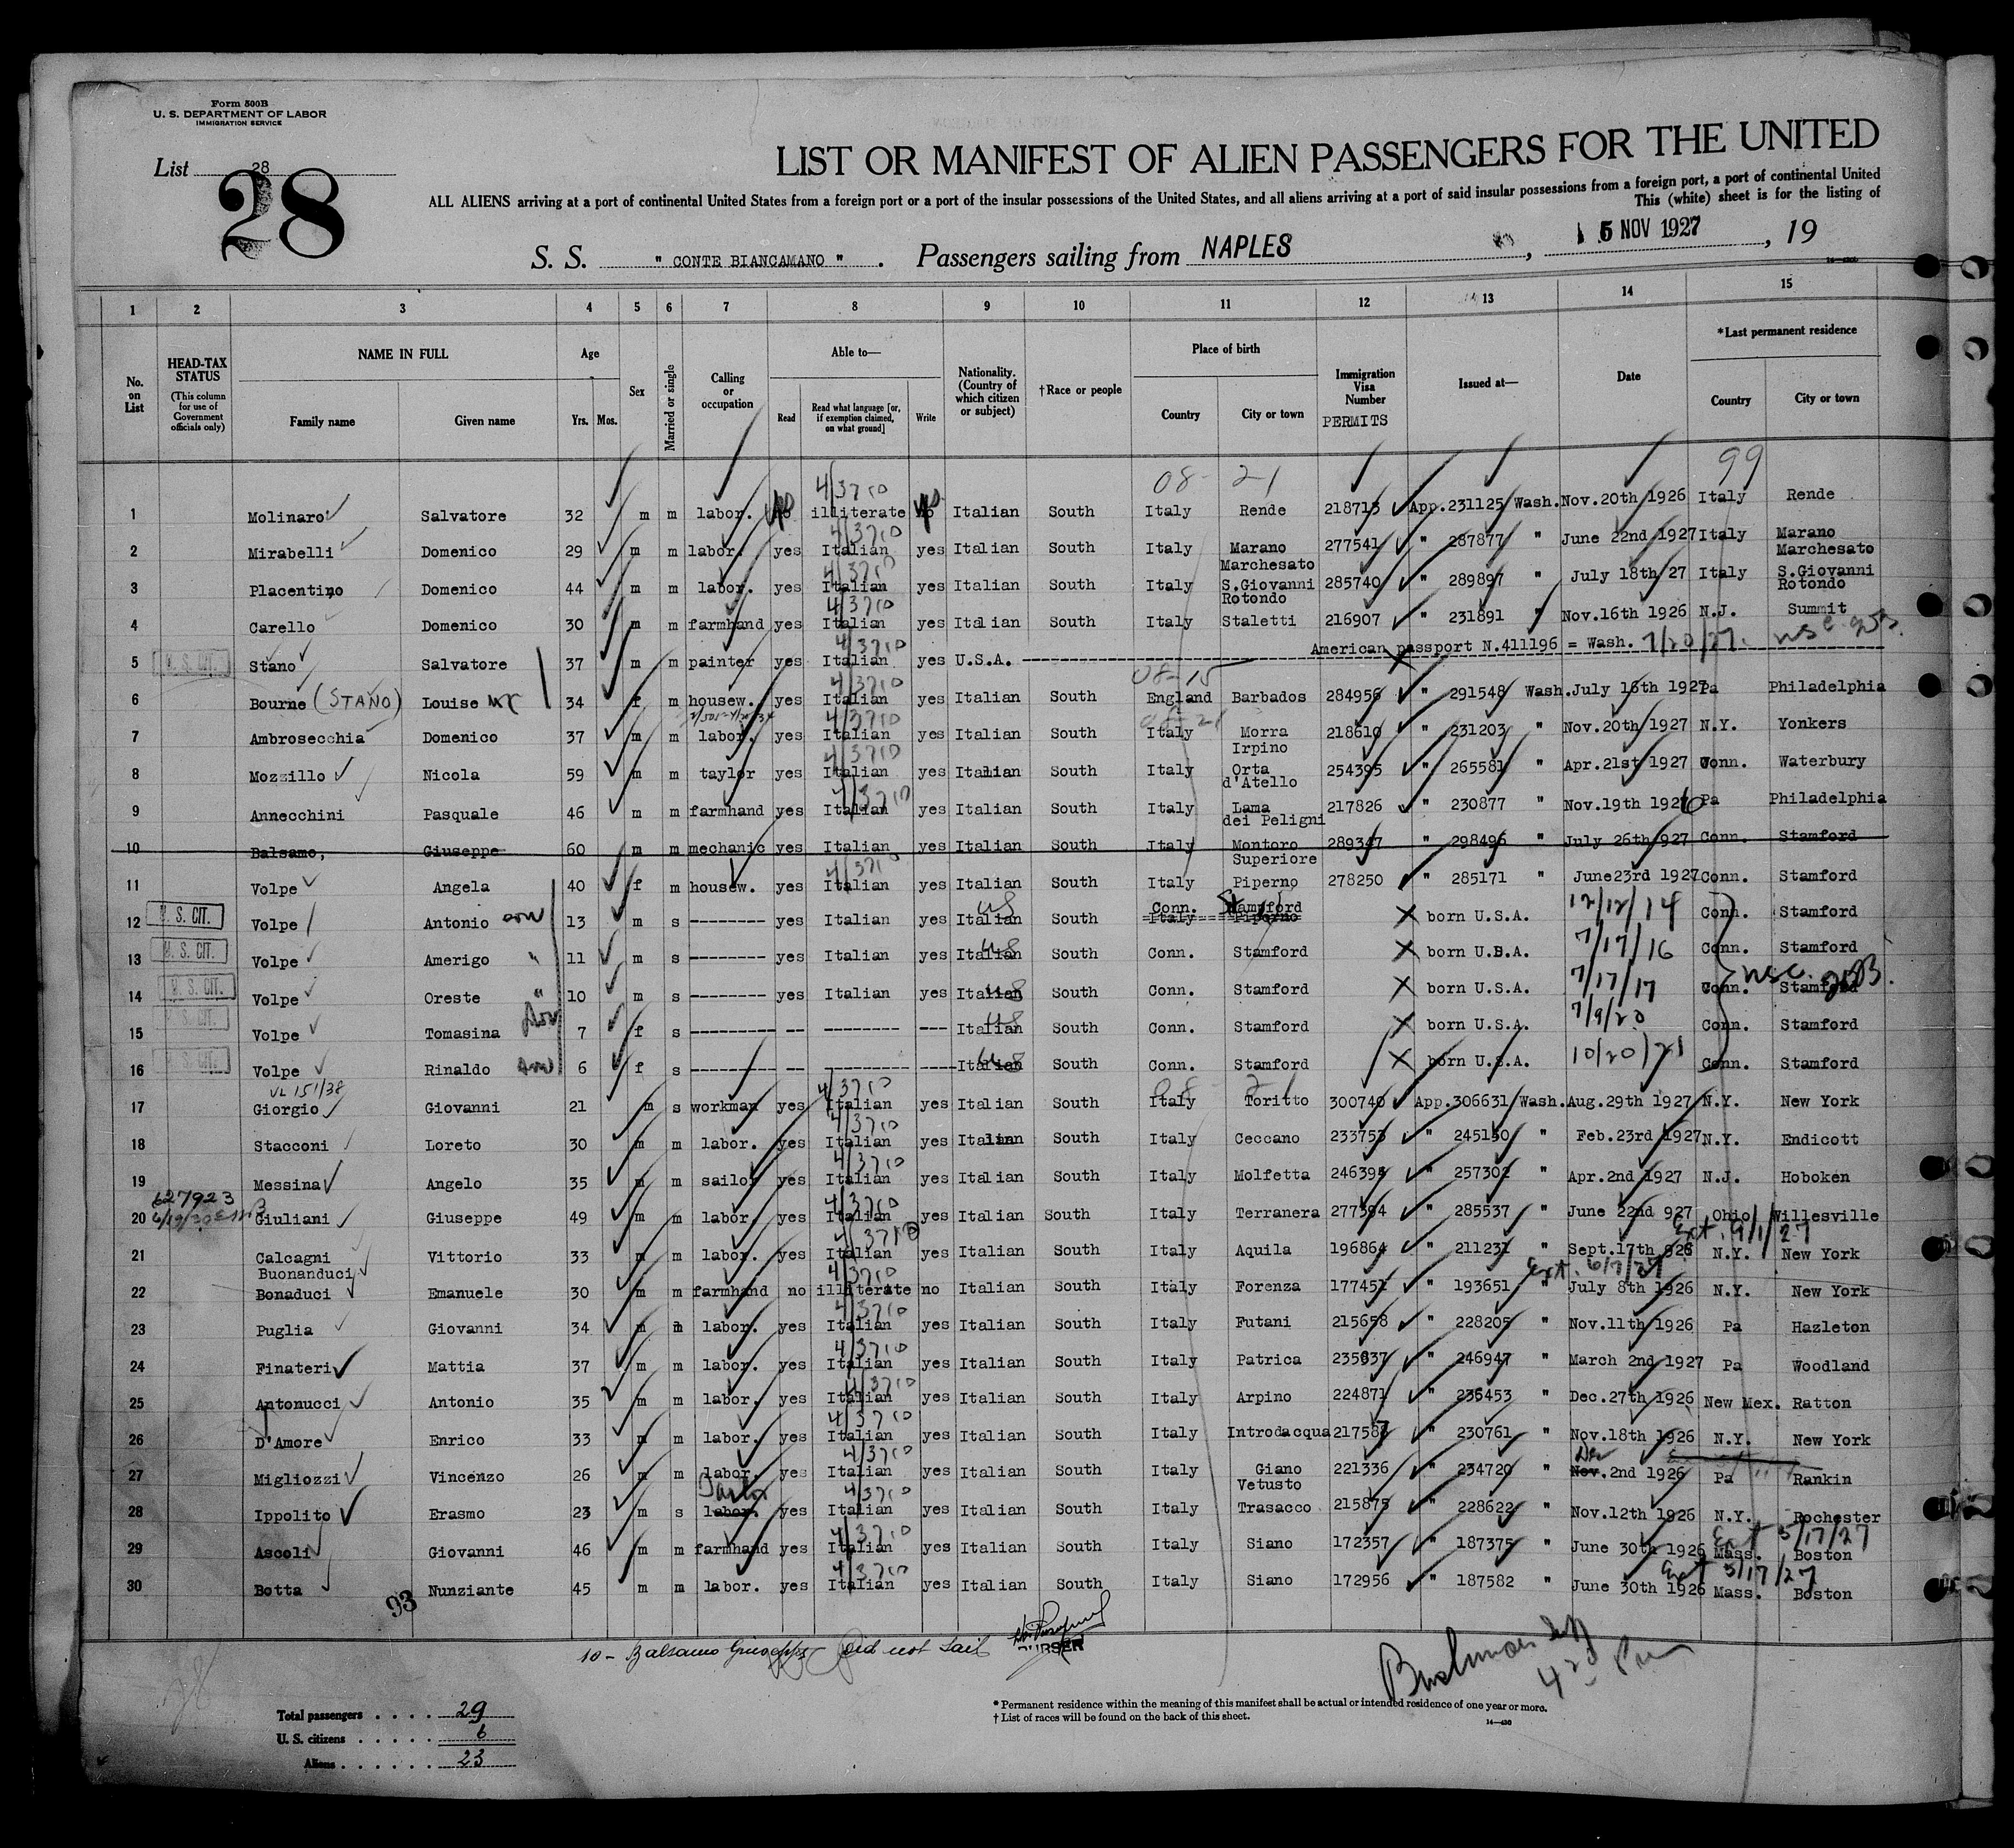 Form 500B
U. S. DEPARTMENT OF LABOR
IMMIGRATION SERVICE
List 28
28
LIST OR MANIFEST OF ALIEN PASSENGERS FOR THE UNITED
ALL ALIENS arriving at a port of continental United States from a foreign port or a port of the insular possessions of the United States, and all aliens arriving at a port of said insular possessions from a foreign port, a port of continental United
This (white) sheet is for the listing of
S. S. " CONTE BIANCAMANO " . Passengers sailing from NAPLES , 15 NOV 1927 , 19
1 2 3 4 5 6 7 8 9 10 11 12 13 14 15
No. on List
HEAD-TAX STATUS (This column for use of Government officials only)
NAME IN FULL Family name Given name
Age Yrs. Mos.
Sex
Married or single
Calling or occupation
Able to— Read Read what language [or, if exemption claimed, on what ground] Write
Nationality. (Country of which citizen or subject)
†Race or people
Place of birth Country City or town
Immigration Visa Number PERMITS
Issued at—
Date
*Last permanent residence Country City or town
08- 21 99
1 Molinaro Salvatore 32 m m labor. no illiterate no Italian South Italy Rende 218713 App.231125 Wash. Nov.20th 1926 Italy Rende
2 Mirabelli Domenico 29 m m labor. yes Italian yes Italian South Italy Marano Marchesato 277541 " 287877 " June 22nd 1927 Italy Marano Marchesato
3 Placentino Domenico 44 m m labor. yes Italian yes Italian South Italy S.Giovanni Rotondo 285740 " 289897 " July 18th 27 Italy S.Giovanni Rotondo
4 Carello Domenico 30 m m farmhand yes Italian yes Italian South Italy Staletti 216907 " 231891 " Nov.16th 1926 N.J. Summit
5 U. S. CIT. Stano Salvatore 37 m m painter yes Italian yes U.S.A. American passport N.411196 = Wash. 7/20/27.
6 Bourne (STANO) Louise 34 f m housew. yes Italian yes Italian South England Barbados 284956 " 291548 Wash. July 16th 1927 Pa Philadelphia
7 Ambrosecchia Domenico 37 m m labor. yes Italian yes Italian South Italy Morra Irpino 218610 " 231203 " Nov.20th 1927 N.Y. Yonkers
8 Mozzillo Nicola 59 m m taylor yes Italian yes Italian South Italy Orta d'Atello 254395 " 265581 " Apr.21st 1927 Conn. Waterbury
9 Annecchini Pasquale 46 m m farmhand yes Italian yes Italian South Italy Lama dei Peligni 217826 " 230877 " Nov.19th 1926 Pa Philadelphia
10 Balsamo, Giuseppe 60 m m mechanic yes Italian yes Italian South Italy Montoro Superiore 289347 " 298496 " July 26th 927 Conn. Stamford
11 Volpe Angela 40 f m housew. yes Italian yes Italian South Italy Piperno 278250 " 285171 " June23rd 1927 Conn. Stamford
12 U. S. CIT. Volpe Antonio son 13 m s -------- yes Italian yes Italian US South Conn. Stamford Italy Piperno born U.S.A. 12/12/14 Conn. Stamford
13 U. S. CIT. Volpe Amerigo " 11 m s -------- yes Italian yes Italian US South Conn. Stamford born U.S.A. 7/17/16 Conn. Stamford
14 U. S. CIT. Volpe Oreste " 10 m s -------- yes Italian yes Italian US South Conn. Stamford born U.S.A. 7/17/17 Conn. Stamford
15 U. S. CIT. Volpe Tomasina 7 f s --------- -- -------- --- Italian US South Conn. Stamford born U.S.A. 7/9/20 Conn. Stamford
16 U. S. CIT. Volpe Rinaldo son 6 f s --------- -- --------- ---- Italian US South Conn. Stamford born U.S.A. 10/20/21 Conn. Stamford
17 Giorgio Giovanni 21 m s workman yes Italian yes Italian South Italy Toritto 300740 App.306631 Wash. Aug.29th 1927 N.Y. New York
18 Stacconi Loreto 30 m m labor. yes Italian yes Italian South Italy Ceccano 233753 " 245150 " Feb.23rd 1927 N.Y. Endicott
19 Messina Angelo 35 m m sailor yes Italian yes Italian South Italy Molfetta 246394 " 257302 " Apr.2nd 1927 N.J. Hoboken
627923
20 Giuliani Giuseppe 49 m m labor. yes Italian yes Italian South Italy Terranera 277394 " 285537 " June 22nd 927 Ohio Willesville
Ext. 9/1/27
21 Calcagni Vittorio 33 m m labor. yes Italian yes Italian South Italy Aquila 196864 " 211231 " Sept.17th 926 N.Y. New York
Buonanduci
22 Bonaduci Emanuele 30 m m farmhand no illiterate no Italian South Italy Forenza 177451 " 193651 " July 8th 1926 N.Y. New York
23 Puglia Giovanni 34 m m labor. yes Italian yes Italian South Italy Futani 215658 " 228205 " Nov.11th 1926 Pa Hazleton
24 Finateri Mattia 37 m m labor. yes Italian yes Italian South Italy Patrica 235637 " 246947 " March 2nd 1927 Pa Woodland
25 Antonucci Antonio 35 m m labor. yes Italian yes Italian South Italy Arpino 224871 " 236453 " Dec.27th 1926 New Mex. Ratton
26 D'Amore Enrico 33 m m labor. yes Italian yes Italian South Italy Introdacqua 217587 " 230761 " Nov.18th 1926 N.Y. New York
27 Migliozzi Vincenzo 26 m m labor. yes Italian yes Italian South Italy Giano Vetusto 221336 " 234720 " Nov. Dec 2nd 1926 Pa Rankin
28 Ippolito Erasmo 23 m s labor. yes Italian yes Italian South Italy Trasacco 215875 " 228622 " Nov.12th 1926 N.Y. Rochester
29 Ascoli Giovanni 46 m m farmhand yes Italian yes Italian South Italy Siano 172357 " 187375 " June 30th 1926 Mass. Boston
Ext 5/17/27
30 Botta Nunziante 45 m m labor. yes Italian yes Italian South Italy Siano 172956 " 187582 " June 30th 1926 Mass. Boston
Ext 5/17/27
93
10 - Balsamo Giuseppe did not sail
PURSER
Total passengers . . . . 29
U. S. citizens . . . . . 6
Aliens . . . . . . 23
* Permanent residence within the meaning of this manifest shall be actual or intended residence of one year or more.
† List of races will be found on the back of this sheet.
14—430